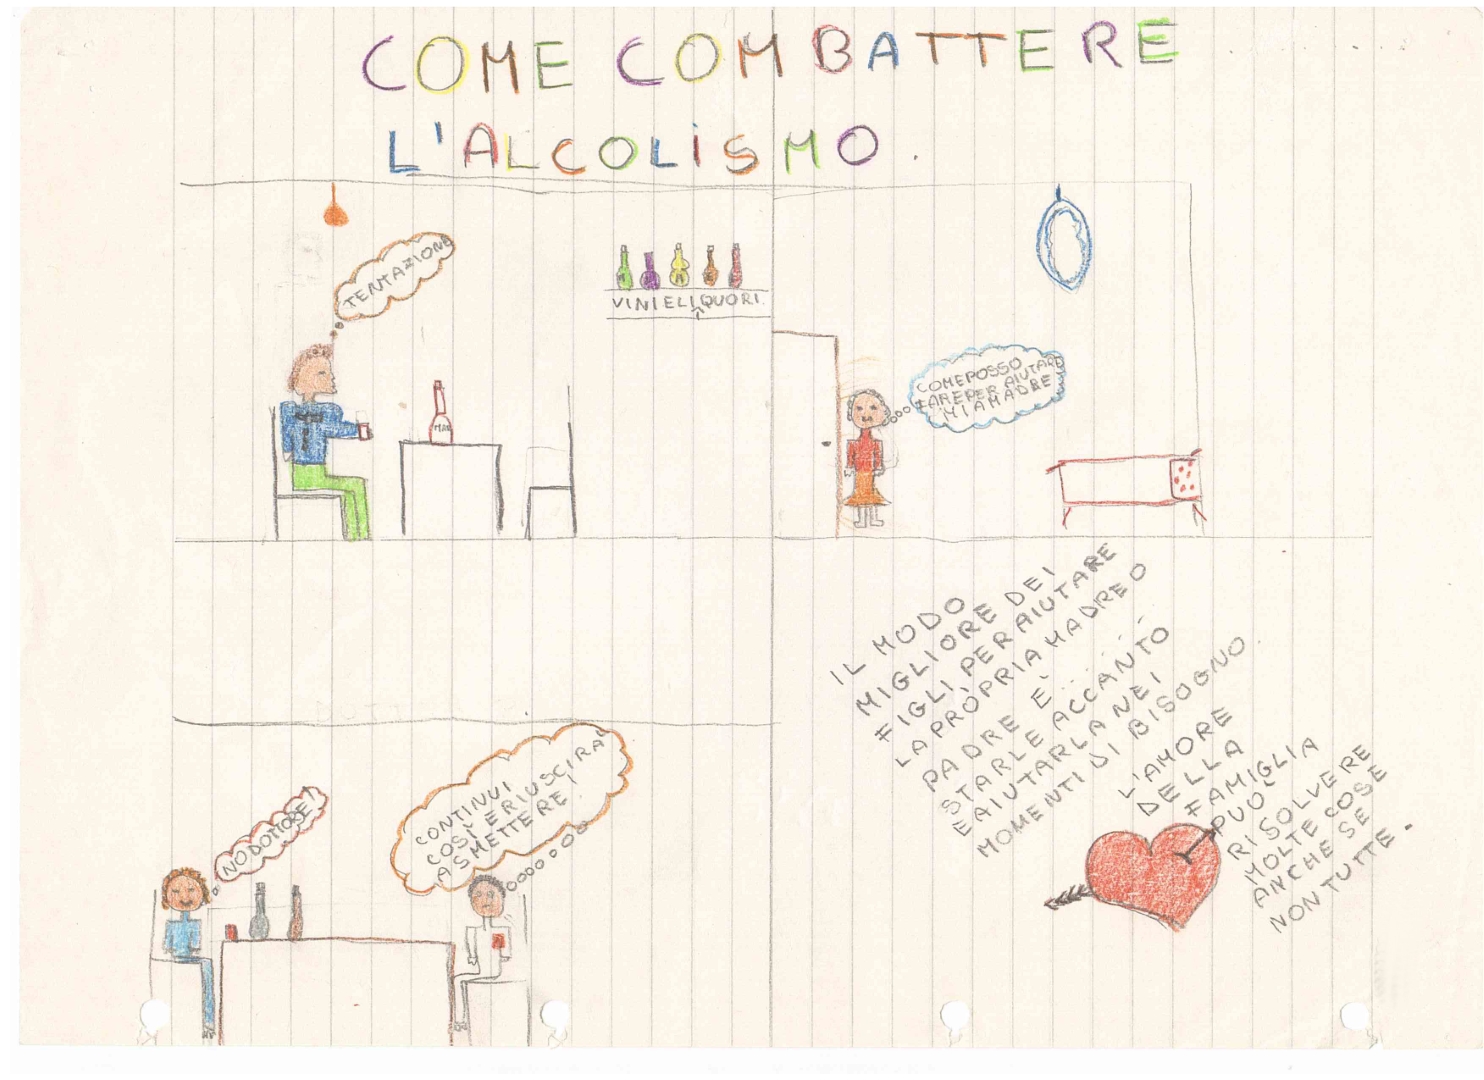 COME COMBATTERE
L'ALCOLISMO.
TENTAZIONE
VINI E LIQUORI.
COME POSSO
FARE PER AIUTARE
MIA MADRE
IL MODO
MIGLIORE DEI
FIGLI PER AIUTARE
LA PROPRIA MADRE O
PADRE È......
STARLE ACCANTO
E AIUTARLA NEI
MOMENTI DI BISOGNO.
L'AMORE
DELLA
FAMIGLIA
PUÒ
RISOLVERE
MOLTE COSE
ANCHE SE
NON TUTTE.
NO DOTTORE!
CONTINUI
COSÌ E RIUSCIRÀ
A SMETTERE!